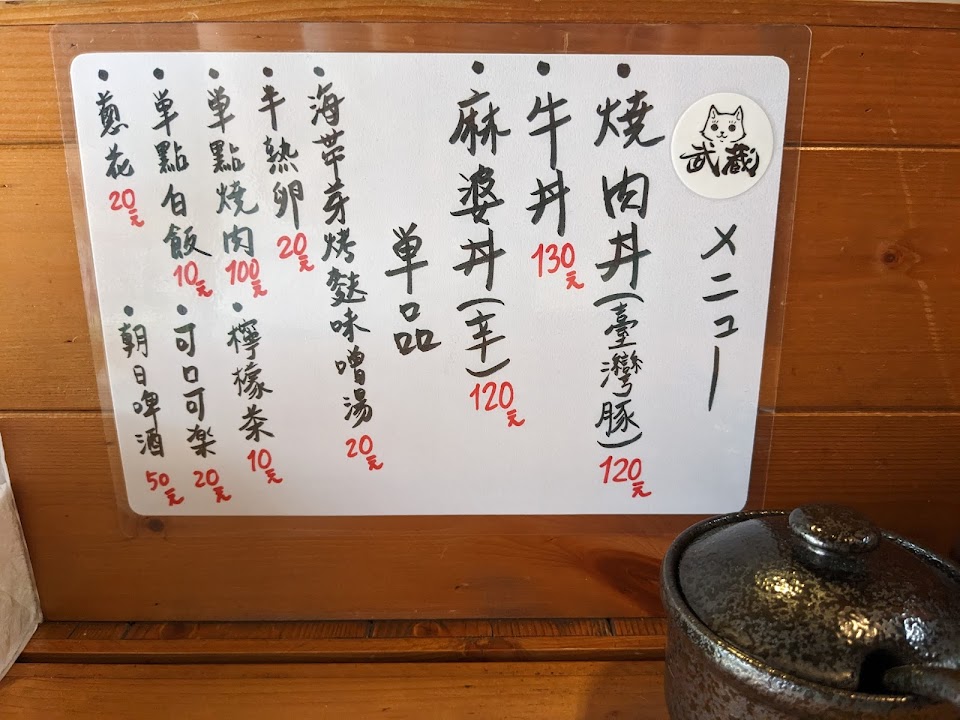 武蔵
メニュー
・燒肉丼(臺灣豚)120元
・牛丼130元
・麻婆丼(辛)120元
単品
・海帯芽烤麩味噌湯20元
・半熟卵20元
・単點燒肉100元
・檸檬茶10元
・単點白飯10元
・可口可楽20元
・蔥花20元
・朝日啤酒50元